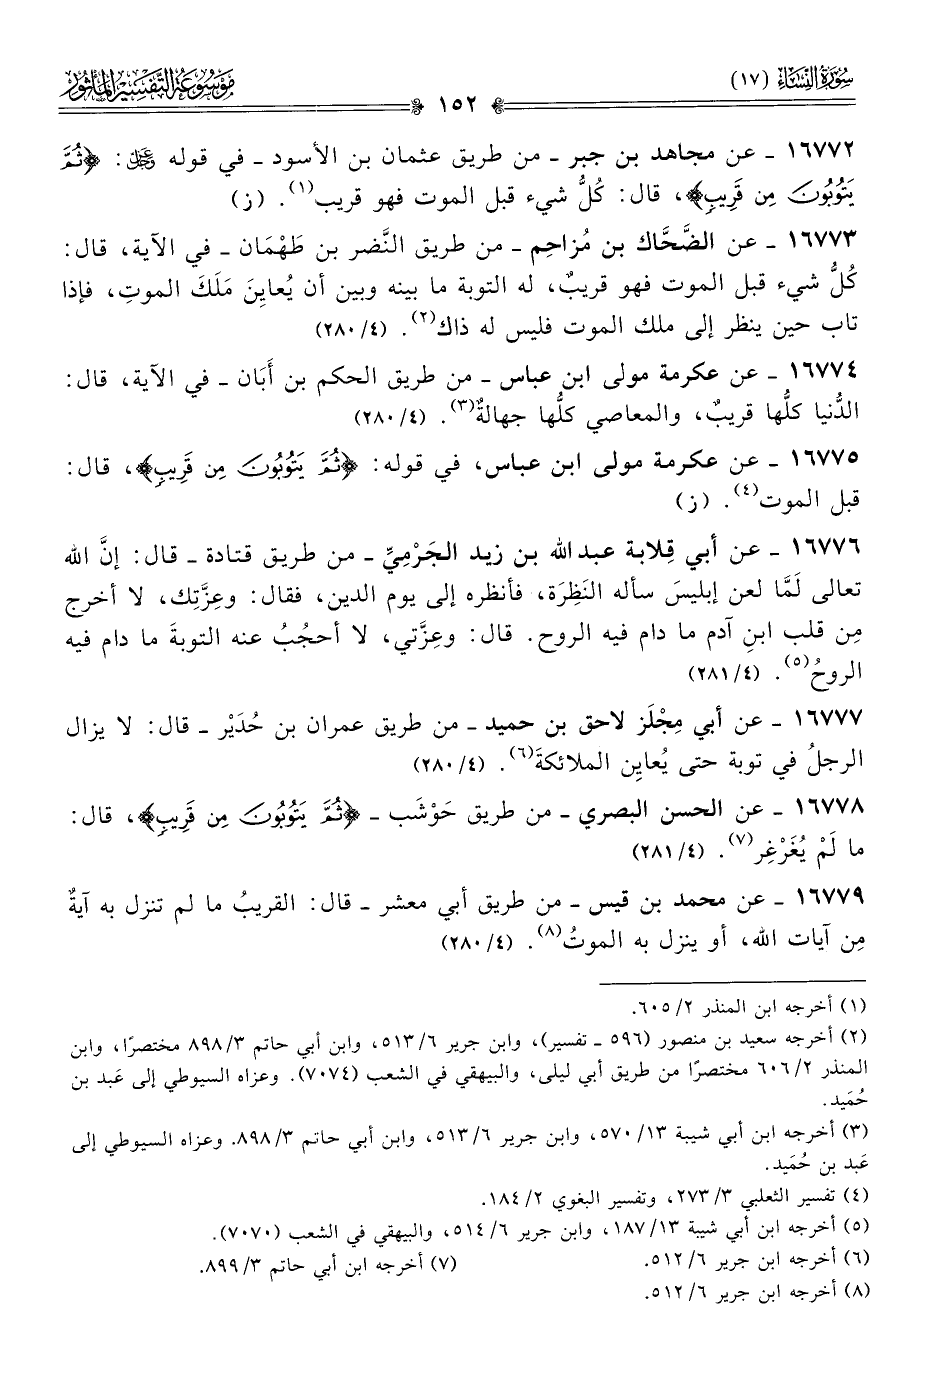 سُورَةُ النِّسَاءِ (١٧)
١٥٢
مَوْسُوعَةُ التَّفْسِيرِ المَأْثُورِ
١٦٧٧٢ ـ عن مجاهد بن جبر ـ من طريق عثمان بن الأسود ـ في قوله ﷿: ﴿ثُمَّ
يَتُوبُونَ مِن قَرِيبٍ﴾، قال: كُلُّ شيء قبل الموت فهو قريب(١). (ز)
١٦٧٧٣ ـ عن الضَّحَّاك بن مُزاحِم ـ من طريق النَّضر بن طَهْمَان ـ في الآية، قال:
كُلُّ شيء قبل الموت فهو قريبٌ، له التوبة ما بينه وبين أن يُعايِنَ مَلَكَ الموتِ، فإذا
تاب حين ينظر إلى ملك الموت فليس له ذاك(٢). (٢٨٠/٤)
١٦٧٧٤ ـ عن عكرمة مولى ابن عباس ـ من طريق الحكم بن أَبَان ـ في الآية، قال:
الدُّنيا كلُّها قريبٌ، والمعاصي كلُّها جهالةٌ(٣). (٢٨٠/٤)
١٦٧٧٥ ـ عن عكرمة مولى ابن عباس، في قوله: ﴿ثُمَّ يَتُوبُونَ مِن قَرِيبٍ﴾، قال:
قبل الموت(٤). (ز)
١٦٧٧٦ ـ عن أبي قِلابة عبد الله بن زيد الجَرْمِيِّ ـ من طريق قتادة ـ قال: إنَّ الله
تعالى لَمَّا لعن إبليسَ سأله النَظِرَة، فأنظره إلى يوم الدين، فقال: وعِزَّتِك، لا أخرج
مِن قلب ابنِ آدم ما دام فيه الروح. قال: وعِزَّتي، لا أحجُبُ عنه التوبةَ ما دام فيه
الروحُ(٥). (٢٨١/٤)
١٦٧٧٧ ـ عن أبي مِجْلَز لاحق بن حميد ـ من طريق عمران بن حُدَيْر ـ قال: لا يزال
الرجلُ في توبة حتى يُعايِن الملائكةَ(٦). (٢٨٠/٤)
١٦٧٧٨ ـ عن الحسن البصري ـ من طريق حَوْشَب ـ ﴿ثُمَّ يَتُوبُونَ مِن قَرِيبٍ﴾، قال:
ما لَمْ يُغَرْغِر(٧). (٢٨١/٤)
١٦٧٧٩ ـ عن محمد بن قيس ـ من طريق أبي معشر ـ قال: القريبُ ما لم تنزل به آيةٌ
مِن آيات الله، أو ينزل به الموتُ(٨). (٢٨٠/٤)
(١) أخرجه ابن المنذر ٢/ ٦٠٥.
(٢) أخرجه سعيد بن منصور (٥٩٦ ـ تفسير)، وابن جرير ٦/ ٥١٣، وابن أبي حاتم ٣/ ٨٩٨ مختصرًا، وابن
المنذر ٢/ ٦٠٦ مختصرًا من طريق أبي ليلى، والبيهقي في الشعب (٧٠٧٤). وعزاه السيوطي إلى عَبد بن
حُمَيد.
(٣) أخرجه ابن أبي شيبة ١٣/ ٥٧٠، وابن جرير ٦/ ٥١٣، وابن أبي حاتم ٣/ ٨٩٨. وعزاه السيوطي إلى
عَبد بن حُمَيد.
(٤) تفسير الثعلبي ٣/ ٢٧٣، وتفسير البغوي ٢/ ١٨٤.
(٥) أخرجه ابن أبي شيبة ١٣/ ١٨٧، وابن جرير ٦/ ٥١٤، والبيهقي في الشعب (٧٠٧٠).
(٦) أخرجه ابن جرير ٦/ ٥١٢.
(٧) أخرجه ابن أبي حاتم ٣/ ٨٩٩.
(٨) أخرجه ابن جرير ٦/ ٥١٢.